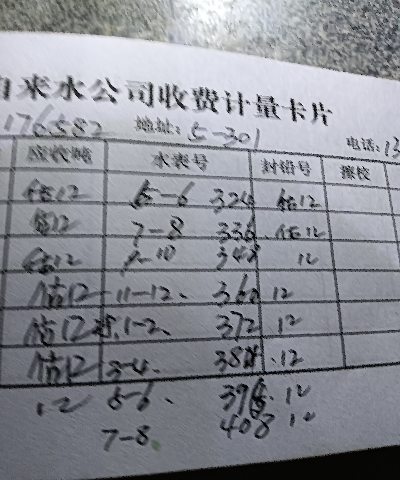 自来水公司收费计量卡片
176582 地址:5-301 电话:13
应收吨 水表号 封铅号 擦校
估12 5-6 324 估12
估12 7-8 336 估12
估12 9-10 348 12
估12 11-12、 360 12
估12 1-2、 372 12
估12 3-4、 384 12
12 5-6、 396 12
7-8 408 12